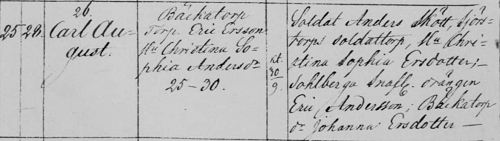 26.
25 28. Carl Au-
gust.
Bäckatorp
Torp. Eric Ersson
Hu Christina So-
phia Andersdr
25-30.
st.
30
9.
Soldat Anders Skött,
torps soldattorp, Hu Chri-
stina Sophia Ersdotter;
Sohlberga drängen
Eric Andersson; Bäckatorp
dr Johanna Ersdotter